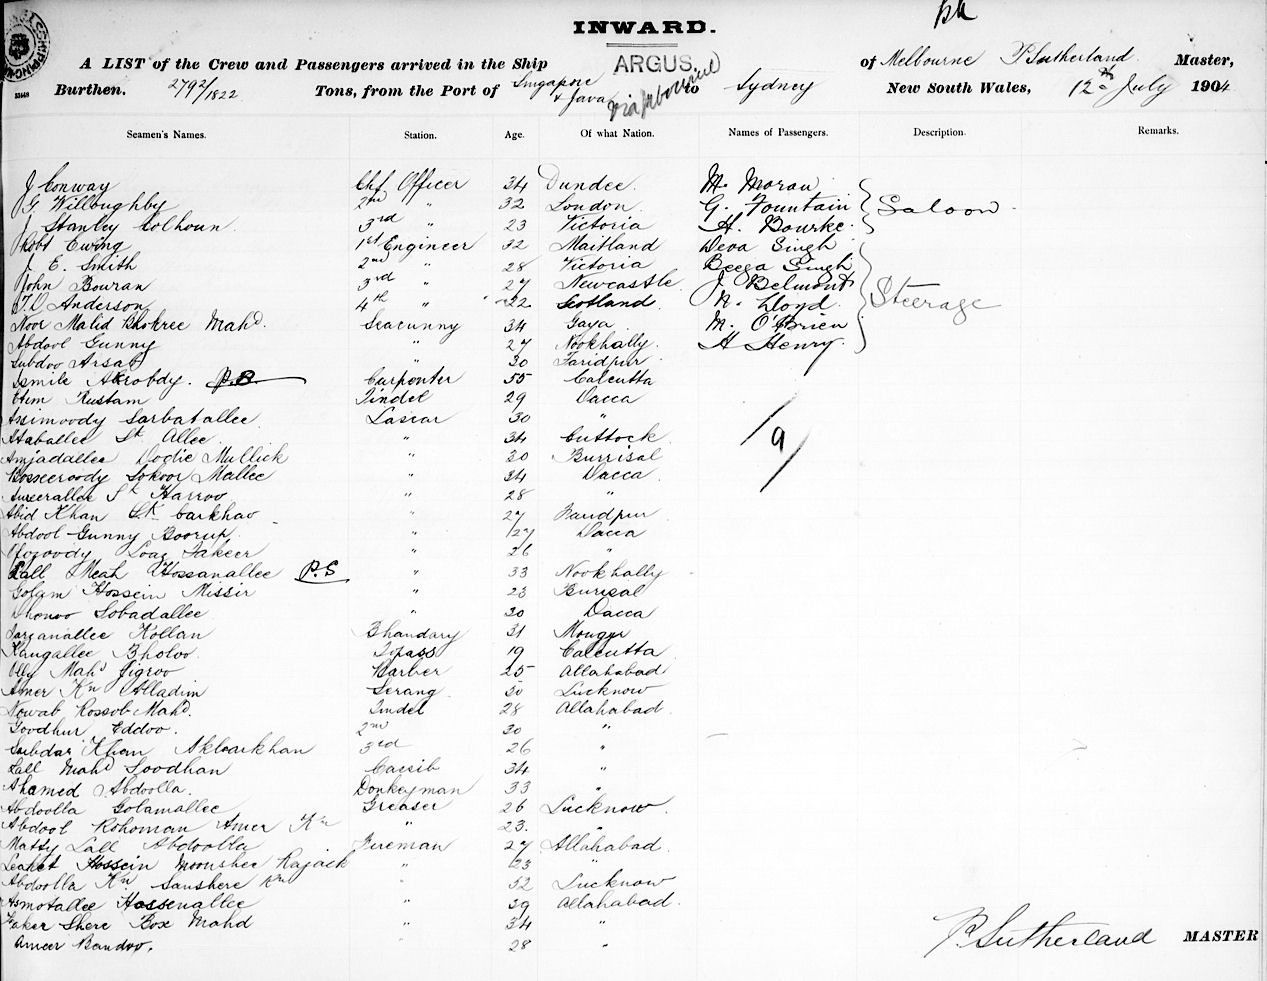 INWARD.
A LIST of the Crew and Passengers arrived in the Ship ARGUS, of Melbourne P Sutherland Master,
Burthen. 2792/1822 Tons, from the Port of Singapore & Java via Melbourne to Sydney New South Wales, 12th July 1904
Seamen's Names. Station. Age. Of what Nation. Names of Passengers. Description. Remarks.
J Conway Chf Officer 34 Dundee. M. Moran
G Willoughby 2nd " 32 London. G. Fountain Saloon
J Stanley Colhoun 3rd " 23 Victoria A. Bourke
Robt Ewing 1st Engineer 32 Maitland Deva Singh
J. E. Smith 2nd " 28 Victoria Becca Singh
John Bowran 3rd " 27 Newcastle J Belmont Steerage
T. D Anderson 4th " 22 Scotland N. Lloyd
Noor Malid Bhokree Mahd. Seacunny 34 Gaya M. O'Brien
Abdool Gunny " 27 Nookhally. H Henry.
Subdoo Arsat " 30 Faridpur
Ismile Akrobdy. Carpenter 55 Calcutta
Etim Rustam Tindel 29 Dacca
Assimoody Sarbatallee Lascar 30 "
Ataballee Sk Allee " 34 Cuttock
Amjadallee Doglie Mullick " 30 Burrisal
Bosseeroody Sokoor Mallee " 34 Dacca
Aumerallee Sk Harroo " 28 "
Abid Khan Sk Carkhao " 27 Faridpur
Abdool Gunny Boorup " 27 Dacca
Loag Fakeer " 26 "
Lall Meah Hossanallee P.S " 33 Nookhally
Golam Hossein Missir " 23 Burisal
Dhonoo Sobadallee " 30 Dacca
Kollan Bhandary 31 Mongyr
Kangallee Bholoo Topass 19 Calcutta
Olly Mahd Jigroo Barber 25 Allahabad
Amer Kn Alladin Serang 30 Lucknow
Nowab Rossob Mahd. Tindel 28 Allahabad
Goodhur Eddoo. 2nd 30 "
Subdar Khan Akbarkhan 3rd 26 "
Lall Mahd Soodhan Cassib 34 "
Ahamed Abdoolla. Donkeyman 33 "
Abdoolla Golamallee Greaser 26 Lucknow
Abdool Rohoman Amer Kn " 23. "
Matty Lall Abdoolla Fireman 27 Allahabad
Leakat Hossein Moonshee Rajack " 23 "
Abdoolla Kn Sanshere Kn " 32 Lucknow
Asmotallee Hossenallee " 39 Allahabad
Faker Shere Box Mahd " 34 "
Ameer Bandoo. " 28 "
9
P. Sutherland MASTER